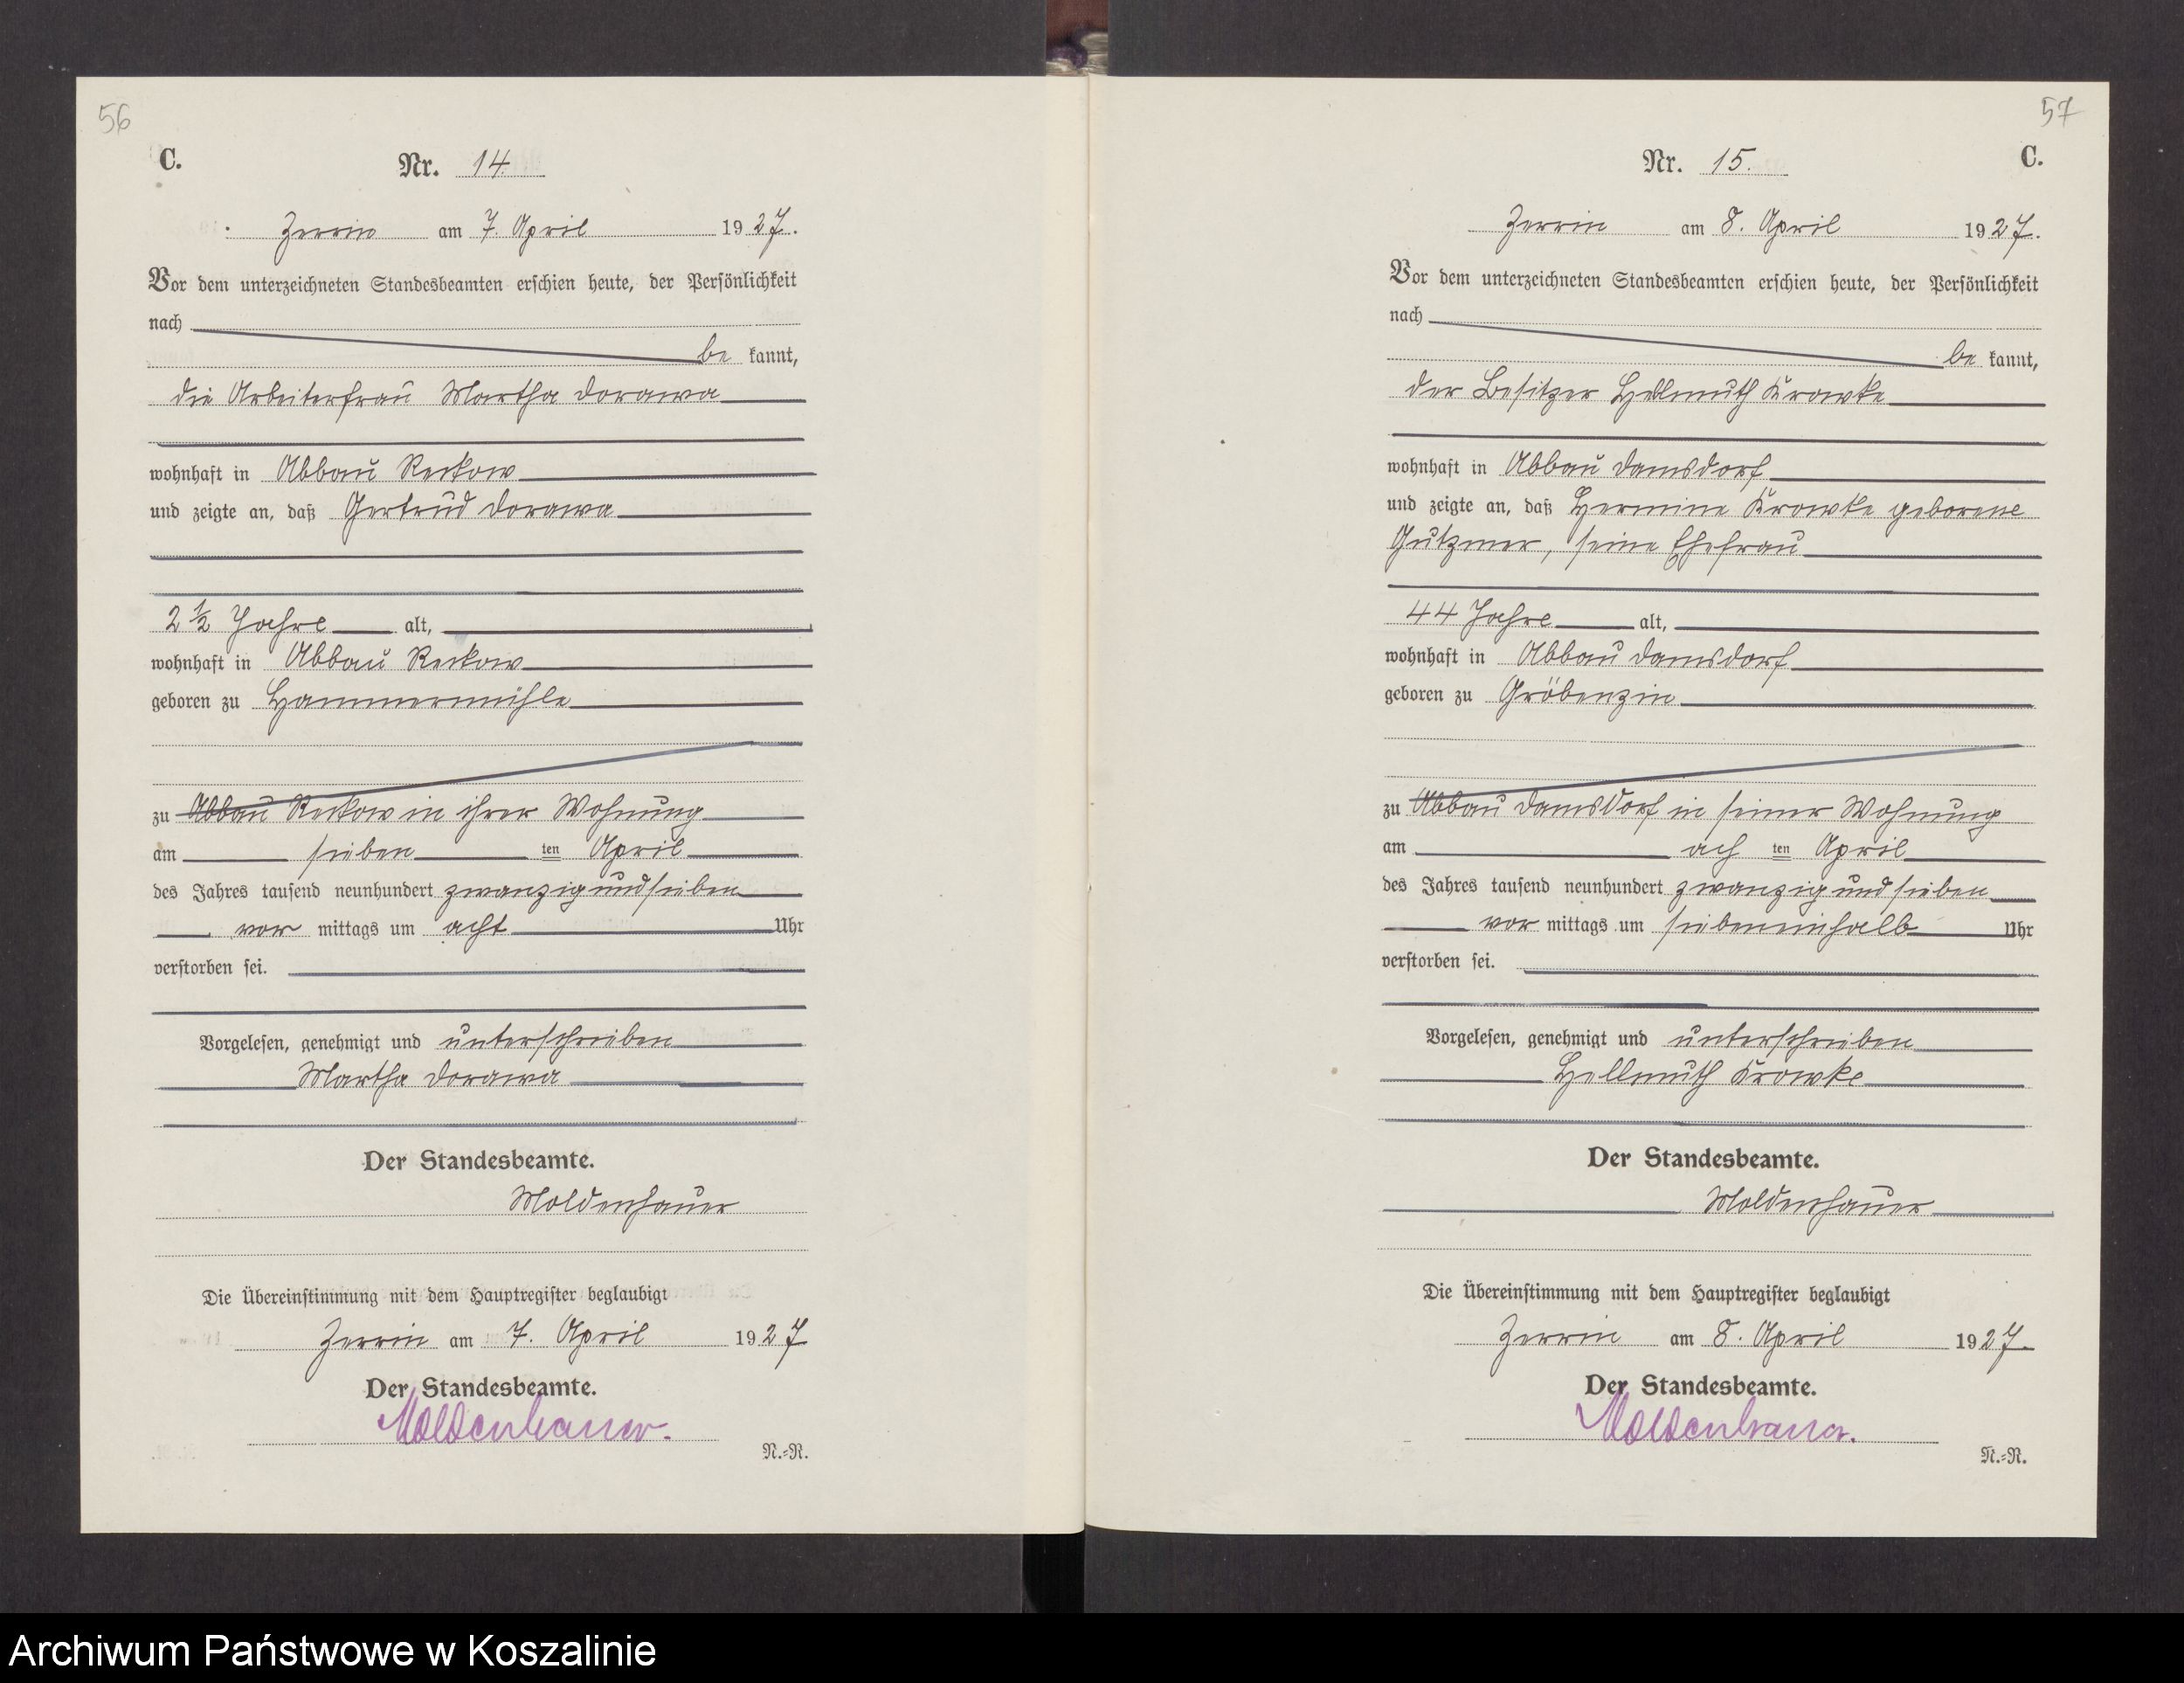 56
C.
Nr. 14.
Zerrin am 7. April 1927.
Vor dem unterzeichneten Standesbeamten erschien heute, der Persönlichkeit
nach
be kannt,
die Arbeiterfrau Martha Dorawa
wohnhaft in Abbau Reckow
und zeigte an, daß Gertrud Dorawa
2 1/2 Jahre alt,
wohnhaft in Abbau Reckow
geboren zu Hammermühle
zu Abbau Reckow in ihrer Wohnung
am sieben ten April
des Jahres tausend neunhundert zwanzig und sieben
vor mittags um acht Uhr
verstorben sei.
Vorgelesen, genehmigt und unterschrieben
Martha Dorawa
Der Standesbeamte.
Moldenhauer
Die Übereinstimmung mit dem Hauptregister beglaubigt
Zerrin am 7. April 1927
Der Standesbeamte.
Moldenhauer.
N.=R.
57
C.
Nr. 15.
Zerrin am 8. April 1927.
Vor dem unterzeichneten Standesbeamten erschien heute, der Persönlichkeit
nach
be kannt,
der Besitzer Hellmuth Krowke
wohnhaft in Abbau Damsdorf
und zeigte an, daß Hermine Krowke geborene
Gutzmer, seine Ehefrau
44 Jahre alt,
wohnhaft in Abbau Damsdorf
geboren zu Gröbenzin
zu Abbau Damsdorf in seiner Wohnung
am ach ten April
des Jahres tausend neunhundert zwanzig und sieben
vor mittags um siebeneinhalb Uhr
verstorben sei.
Vorgelesen, genehmigt und unterschrieben
Hellmuth Krowke
Der Standesbeamte.
Moldenhauer
Die Übereinstimmung mit dem Hauptregister beglaubigt
Zerrin am 8. April 1927.
Der Standesbeamte.
Moldenhauer.
N.=R.
Archiwum Państwowe w Koszalinie